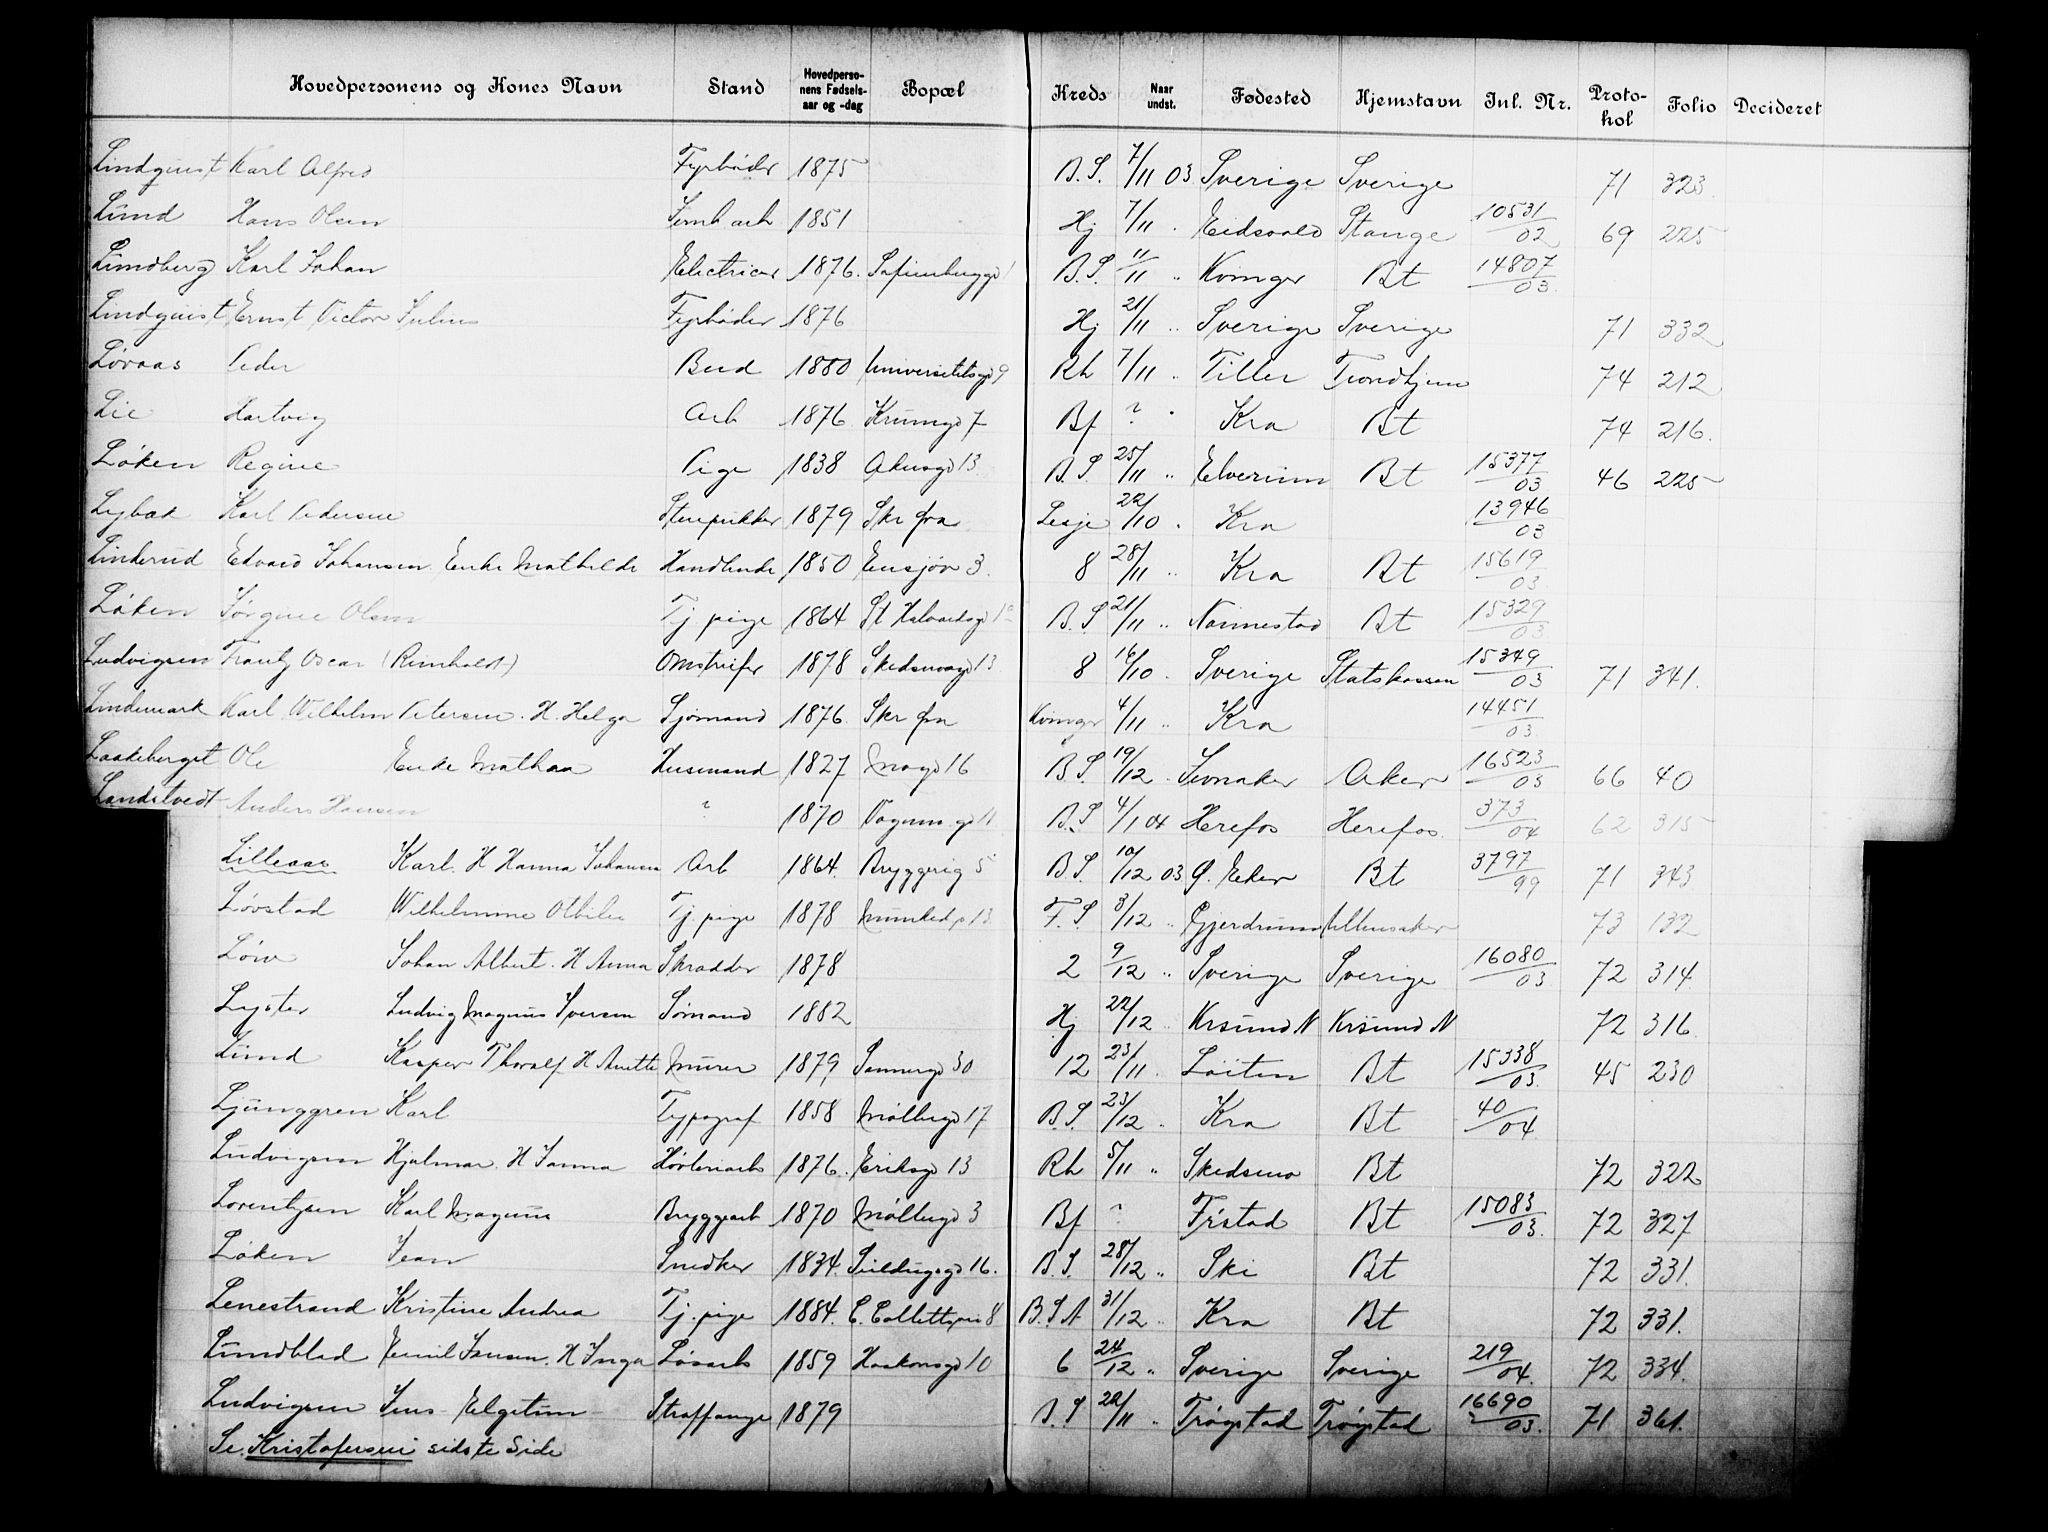 Hovedpersonens og Kones Navn Stand Hovedperso-nens Fødsels-aar og -dag Bopæl Kreds Naar undst. Fødested Hjemstavn Inl. Nr. Proto-kol Folio Decideret
Lindquist Karl Alfred Fyrbøder 1875 B.S. 7/11 03 Sverige Sverige 71 323.
Lund Hans Olsen Jernb arb 1851 Hj 7/11 Eidsvold Stange 10531/02 69 225
Lundberg Karl Johan Electricer 1876. B.S. 11/11 " Kvinger Bt 14807/03
Lindquist Ernst Victor Julius Fyrbøder 1876 Hj 21/11 " Sverige Sverige 71 332
Løvaas Peder Bud 1880 Universitetsgd 9 Rh 7/11 " Tiller Trondhjem 74 212
Lie Hartvig Arb 1876 Krumgd 7 Bf ? " Kra Bt 74 216.
Løken Regine Pige 1838 Akersgd 13 B.S. 25/11 " Elverum Bt 15377/03 46 225
Lybæk Karl Pedersen Stenpikker 1879 Skr fra Lesje 22/10 " Kra 13946/03
Linderud Edvard Johansen Enke Mathilde Handlende 1850 Ensjøv 3. 8 28/11 " Kra Bt 15619/03
Løken Jørgine Olsen Tj. pige 1864 St Halvardsgd B.S. 21/11 " Nannestad Bt 15329/03
Ludvigsen Frantz Oscar (Reinholdt) Omstreifer 1878 Skedsmogd 13 8 16/10 Sverige Statskassen 15349/03 71 341.
Lindemark Karl Wilhelm Petersen. H. Helga Sjømand 1876. Skr fra Kvinger 4/11 " Kra 14451/03
Laakeberget Ole Enke Mathea Husmand 1827 16 B.S. 19/12 Jevnaker Aker 16523/03 66 40
Landstvedt Anders Hansen ? 1870 B.S. 4/1 04 Herefos Herefos. 373/04 62 315
Lilleaas Karl. H Hanna Johansen Arb 1864. Bryggerig 5 B.S. 10/12 03 Ø. Eker Bt 3797/99 71 343
Løvstad Wilhelmine Otilie Tj. pige 1878 Munked 13 F.S. 3/12 " Gjerdrum Ullensaker 73 132
Løw Johan Albert. H Anna Skrædder 1878 2 9/12 " Sverige Sverige 16080/03 72 314
Lyster Ludvig Magnus Iversen Sømand 1882 Hj 22/12 " Krsund N Krsund N 72 316.
Lund Kasper Thoralf H Anette Murer 1879 Sannergd 30 12 23/11 Løiten Bt 15338/03. 45 230
Ljunggren Karl Typograf 1858 Møllergd 17 B.S. 23/12 " Kra Bt 40/04
Ludvigsen Hjalmar. H Janna Høvleriarb 1876. Eriksgd 13 Rh 5/11 " Skedsmo Bt 72 322
Lorentzen Karl Magnus Bryggearb 1870 Møllergd 3 Bf ? Fr.stad Bt 15083/03. 72 327
Løken Jean Snedker 1834. Sveldrupsgd 16. B.S. 28/12 " Ski Bt 72 331.
Lenestrand Kristine Andrea Tj. pige 1884. C. Collettsvei 8 B.S.A 31/12 " Kra Bt 72 331.
Lundblad Emil Jensen. H Inga Løsarb 1859 Haakonsgd 10 6 24/12 " Sverige Sverige 219/04. 72 334.
Ludvigsen Jens Elgetun Straffange 1879 B.S 22/11 " Trøgstad Trøgstad 16690/03. 71 361.
Se. Kristofersen sidste Side